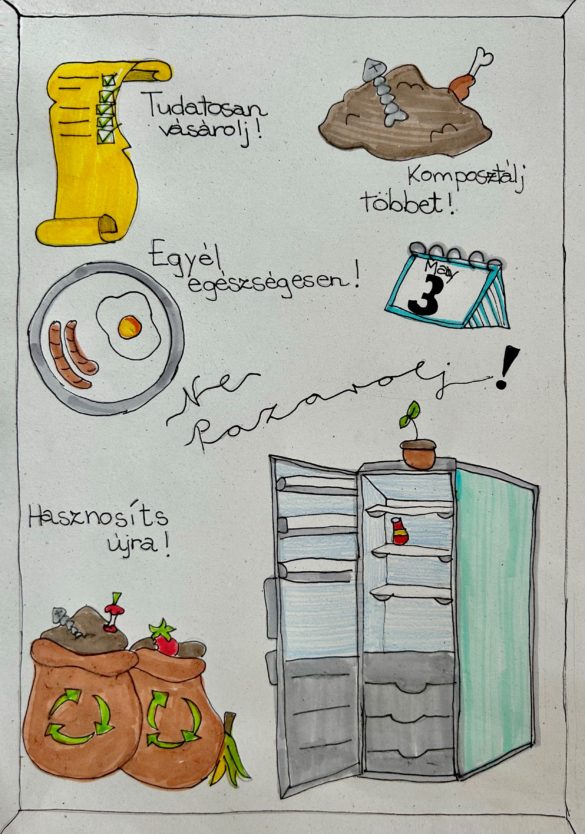 Tudatosan
vásárolj!
Komposztálj
többet!
Egyél
egészségesen!
May
3
Ne
Pazarolj!
Hasznosíts
újra!